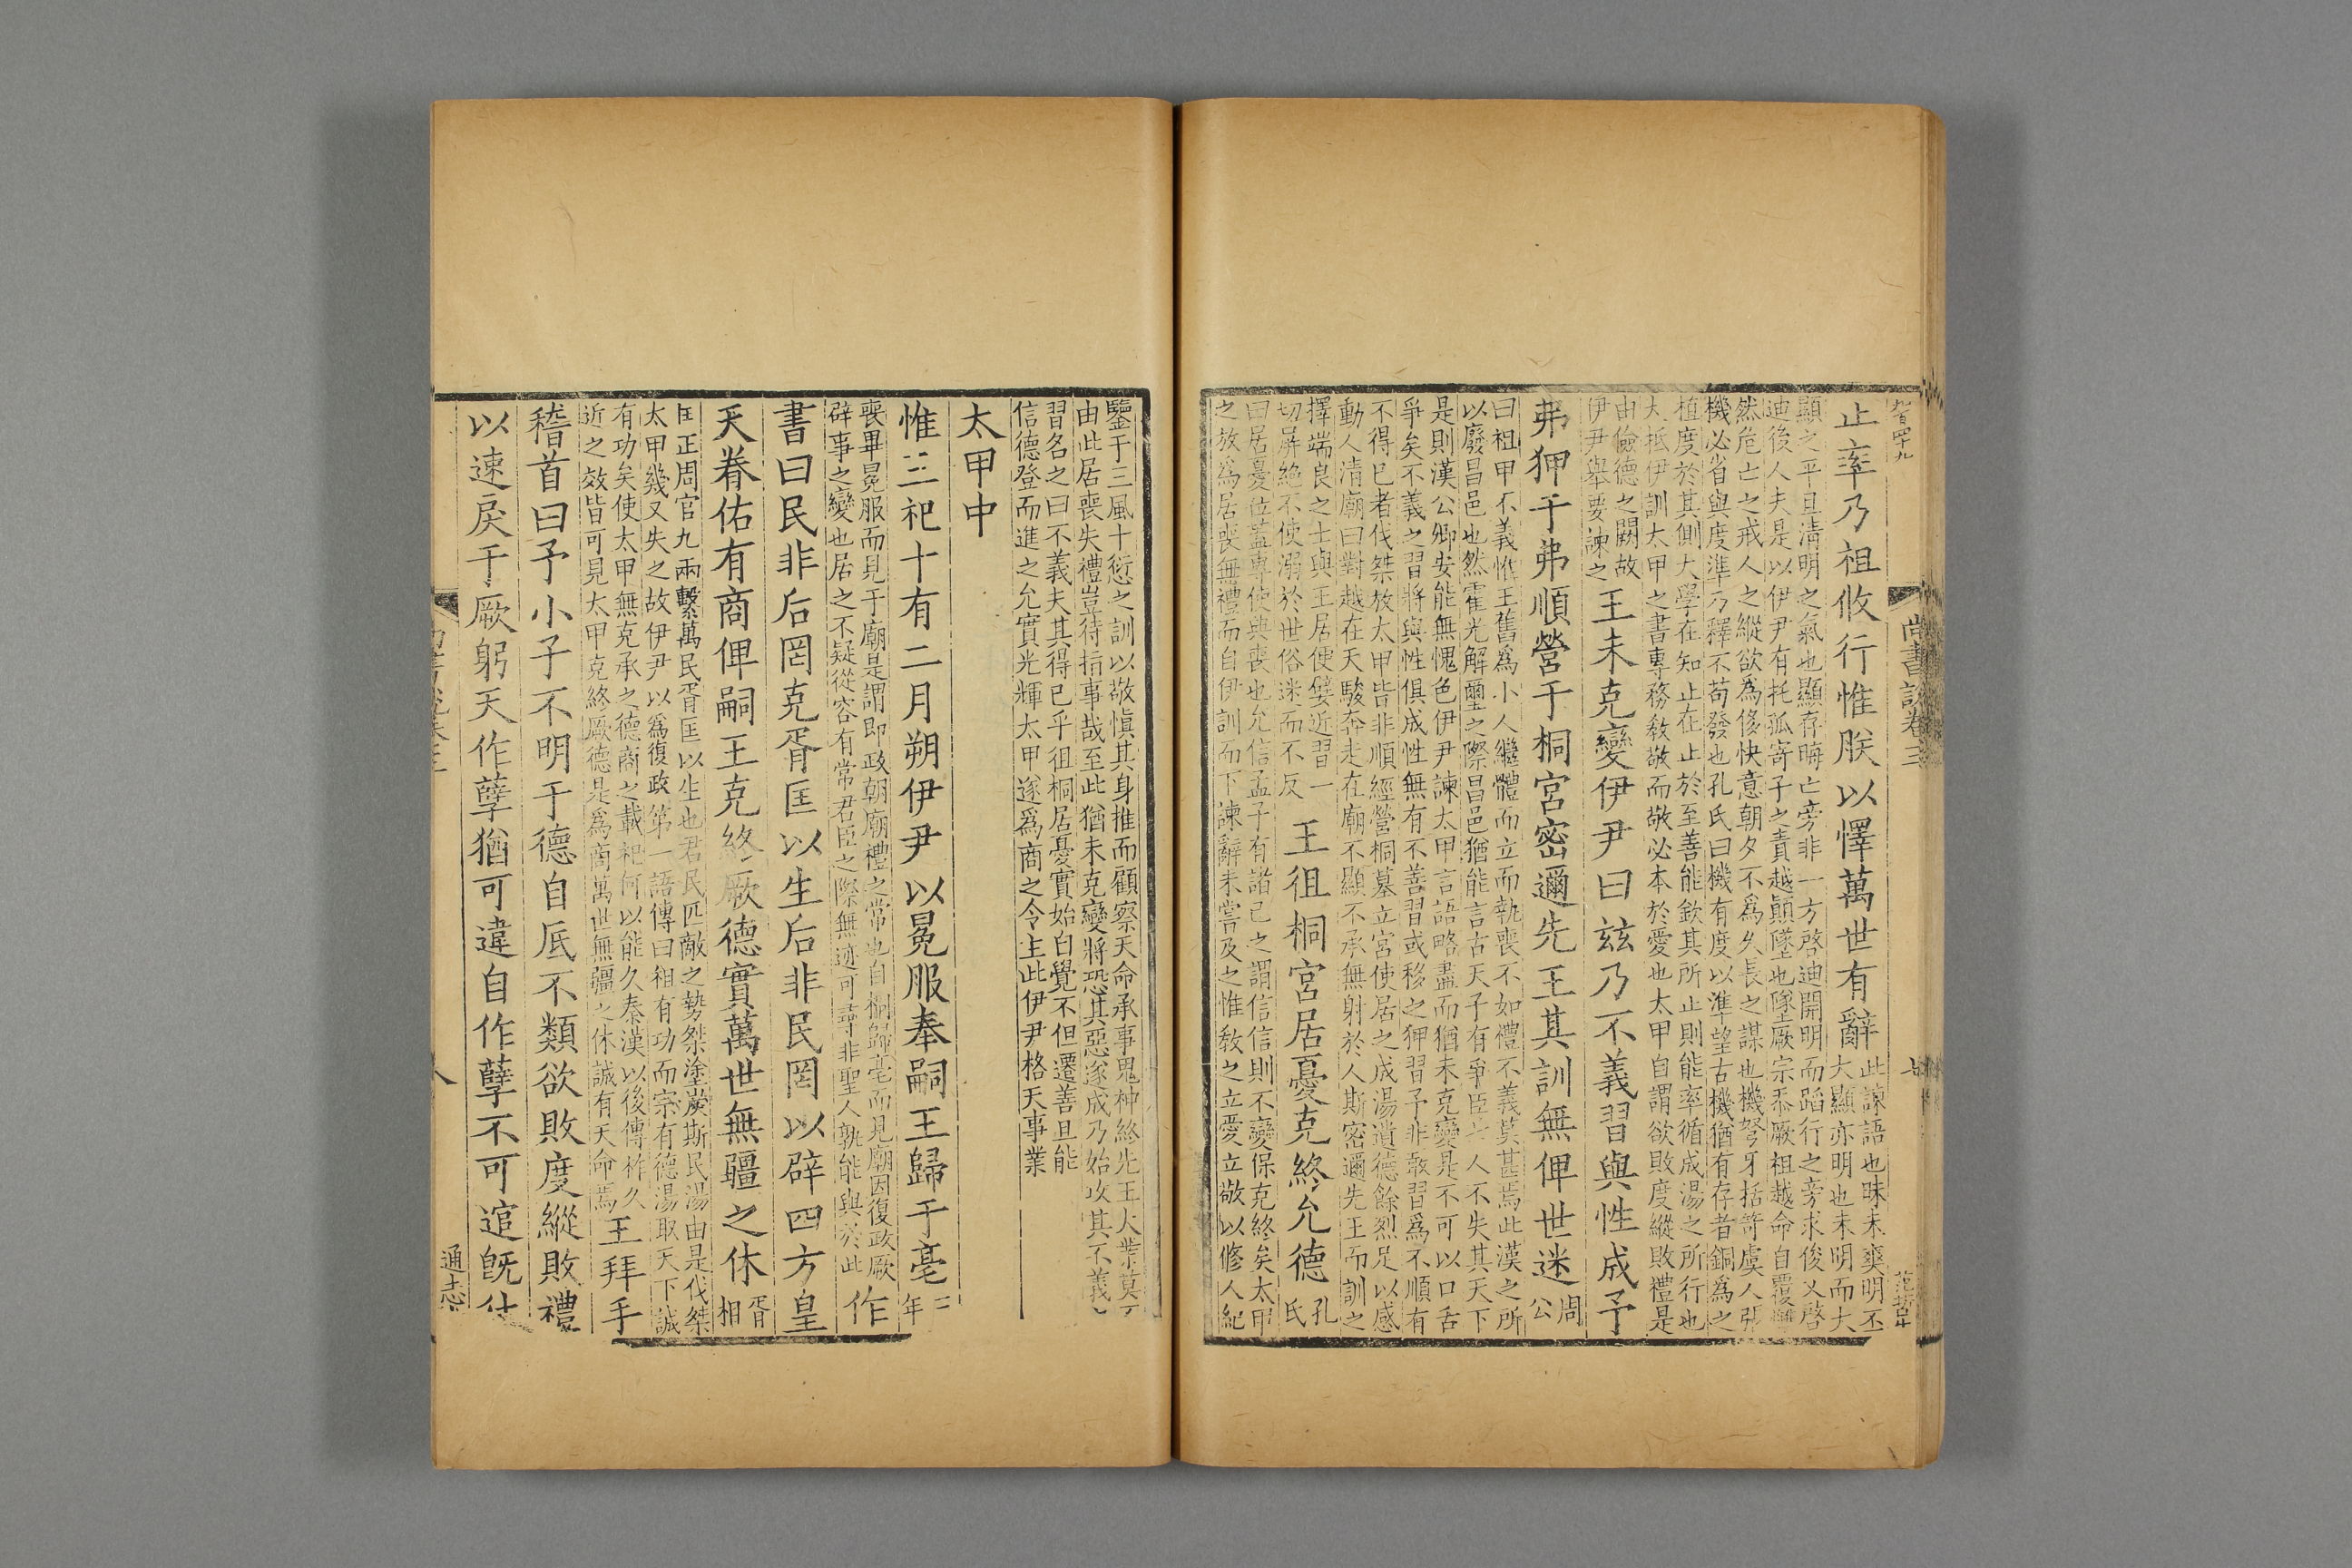 止率乃祖攸行惟朕以懌萬世有辭
此諫語也昧未爽明丕
大顯亦明也未明而大
顯之平旦清明之氣也顯存晦亡旁非一方啓迪開明而蹈行之旁求俊乂啓
迪後人夫是以伊尹有托孤寄子之責越顛墜也墜厥宗忝厥祖越命自覆
然危亡之戒人之縱欲為侈快意朝夕不為久長之謀也機弩牙括苛虞人張
機必省與度準乃釋不苟發也孔氏曰機有度以準望古機猶有存者銅為之
植度於其側大學在知止在止於至善能欽其所止則能率循成湯之所行也
大抵伊訓太甲之書專務敎敬而敬必本於愛也太甲自謂欲敗度縱敗禮是
由儉德之闕故
伊尹舉要諫之
王未克變伊尹曰玆乃不義習與性成予
弗狎于弗順營于桐宮密邇先王其訓無俾世迷
周
公
曰祖甲不義惟王舊爲小人繼體而立而執喪不如禮不義莫甚焉此漢之所
以廢昌邑也然霍光解璽之際昌邑猶能言古天子有爭臣七人不失其天下
是則漢公卿安能無愧色伊尹諫太甲言語略盡而猶未克變是不可以口舌
爭矣不義之習將與性俱成性無有不善習或移之狎習予非敢習爲不順有
不得已者伐桀放太甲皆非順經營桐墓立宮使居之成湯遺德餘烈足以感
動人清廟曰對越在天駿奔走在廟不顯不承無射於人斯密邇先王而訓之
擇端良之士與王居便嬖近習一
切屏絶不使溺於世俗迷而不反
王徂桐宮居憂克終允德
孔
氏
曰居憂位蓋專使與喪也允信孟子有諸己之謂信信則不變保克終矣太甲
之放為居喪無禮而自伊訓而下諫辭未嘗及之惟敎之立愛立敬以修人紀
鑒于三風十愆之訓以敬愼其身推而顧察天命承事鬼神終先王大業莫
由此居喪失禮豈待指事哉至此猶未克變將恐其惡遂成乃始攻其不義
習名之曰不義夫其得已乎徂桐居憂實始自覺不但遷善且能
信德登而進之允實光輝太甲遂爲商之令主此伊尹格天事業
太甲中
惟三祀十有二月朔伊尹以冕服奉嗣王歸于亳
二
年
喪畢冕服而見于廟是謂即政朝廟禮之常也自桐歸亳而見廟因復政厥
辟事之變也居之不疑從容有常君臣之際無迹可尋非聖人孰能與於此
作
書曰民非后罔克胥匡以生后非民罔以辟四方皇
天眷佑有商俾嗣王克終厥德實萬世無疆之休
胥
相
匡正周官九兩繫萬民胥匡以生也君民匹敵之勢桀塗炭斯民湯由是伐桀
太甲幾又失之故伊尹以爲復政第一語傳曰祖有功而宗有德湯取天下誠
有功矣使太甲無克承之德商之載祀何以能久秦漢以後傳祚久
近之效皆可見太甲克終厥德是為商萬世無疆之休誠有天命焉
王拜手
稽首曰予小子不明于德自厎不類欲敗度縱敗禮
以速戾于厥躬天作孽猶可違自作孽不可逭旣
尚書詁卷三
通志